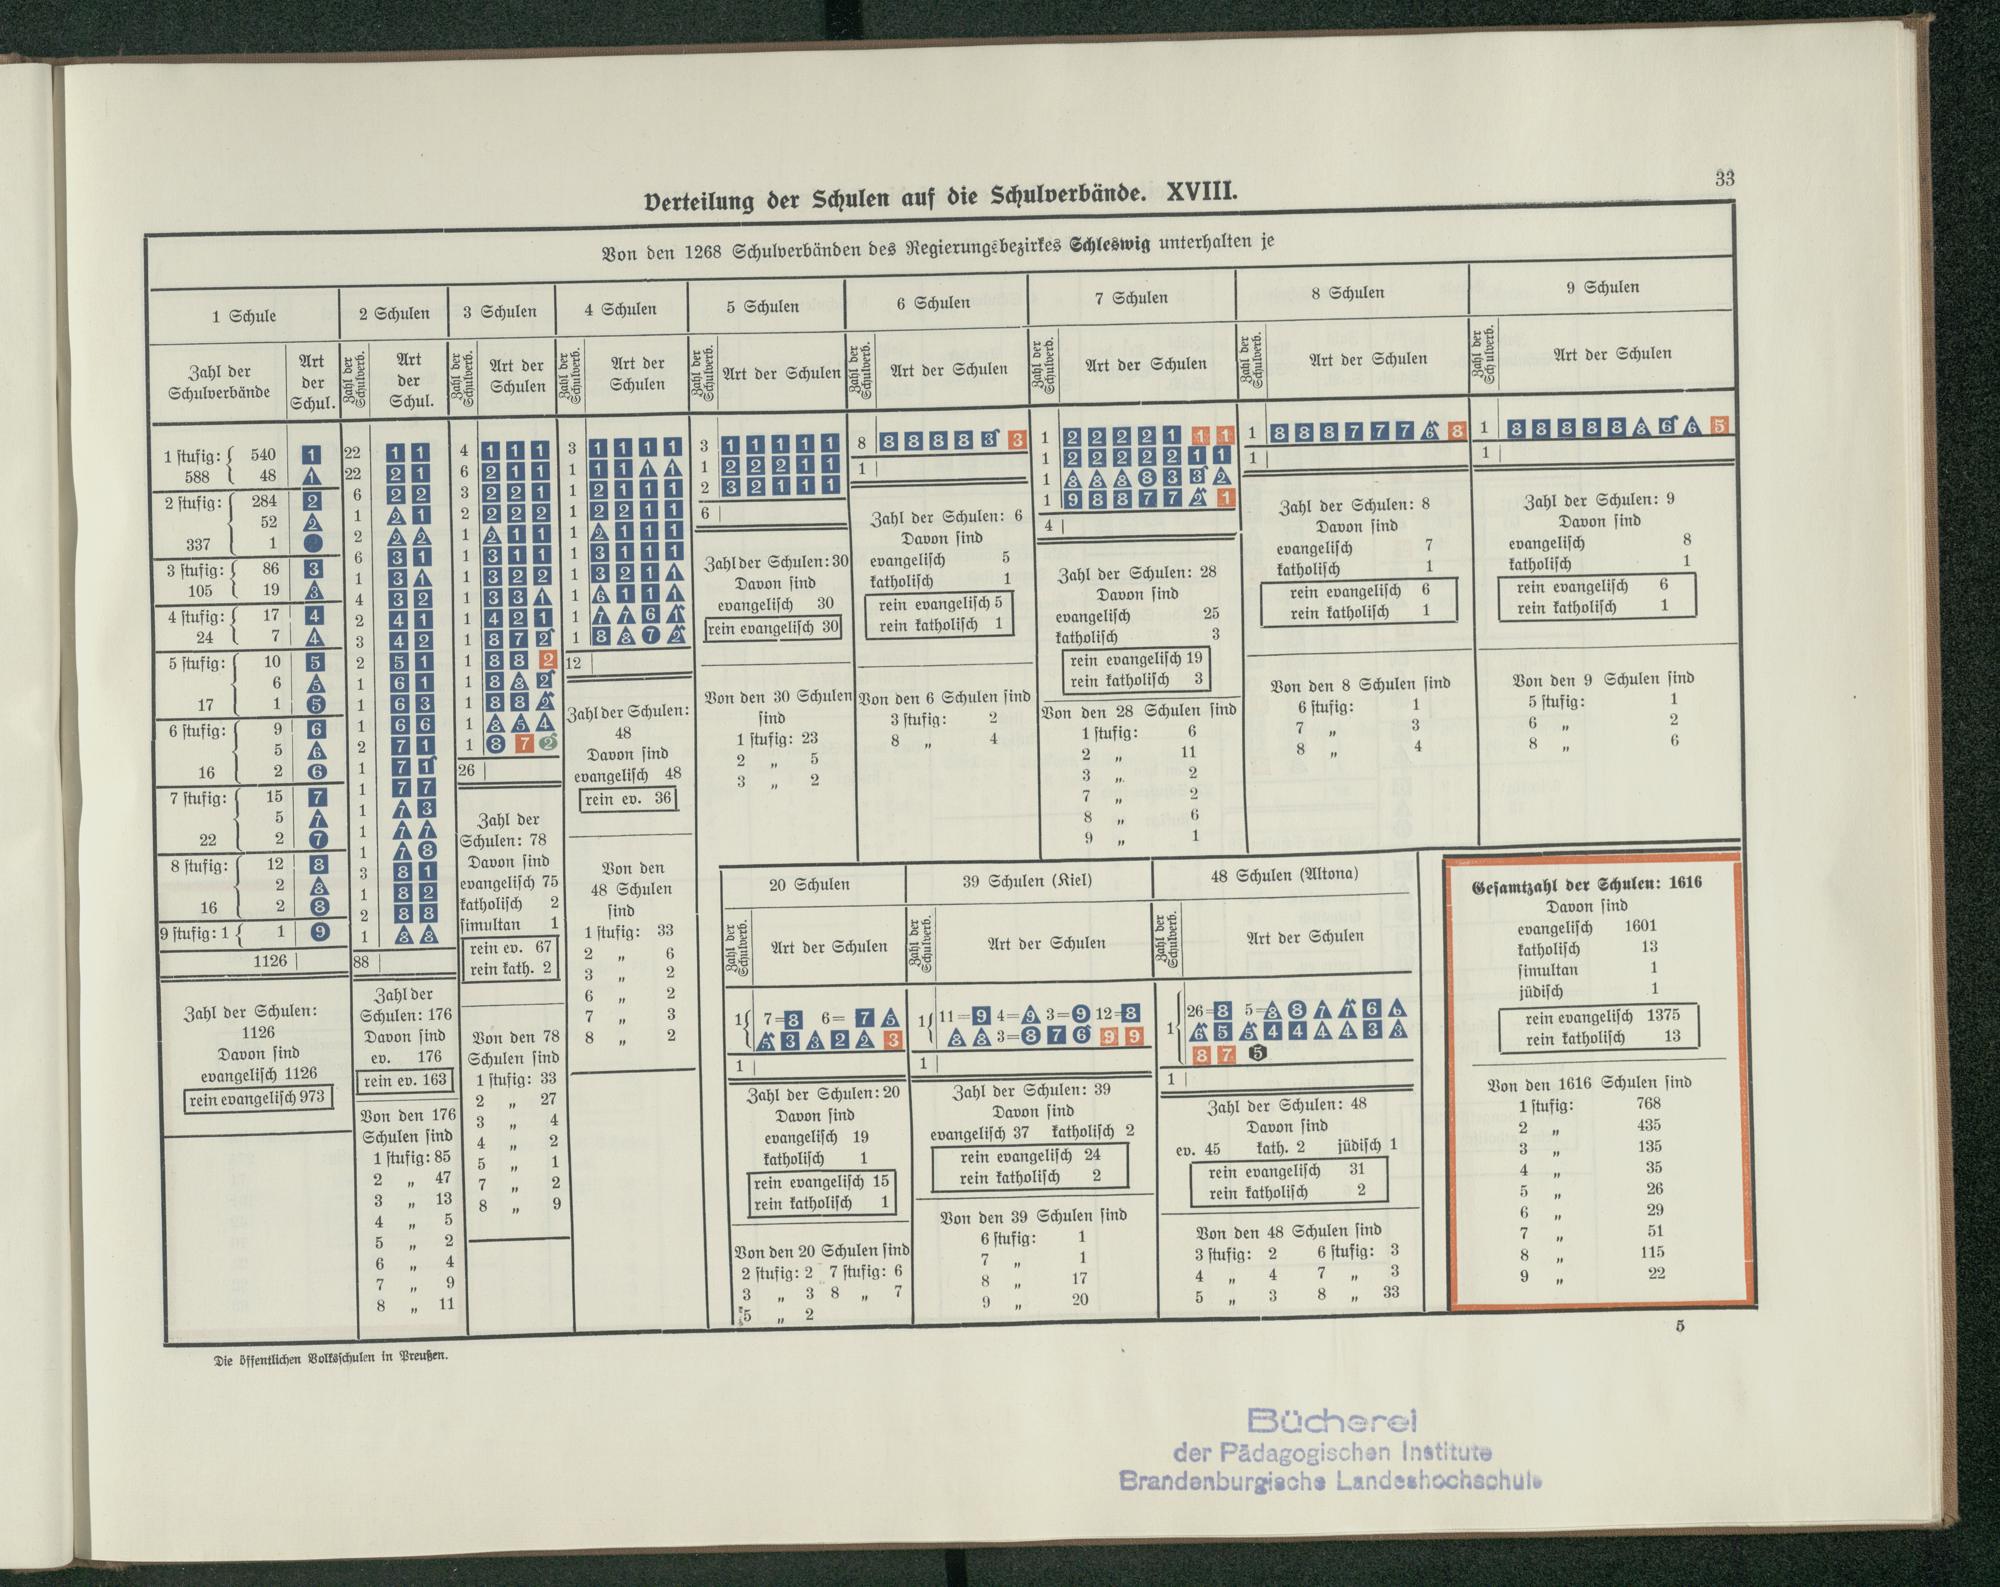 33
Verteilung der Schulen auf die Schulverbände. XVIII.
Von den 1268 Schulverbänden des Regierungsbezirkes Schleswig unterhalten je
1 Schule
Zahl der Schulverbände
Art der Schul.
1 stufig: 540 1
588 48 1
2 stufig: 284 2
52 2
337 1
3 stufig: 86 3
105 19 3
4 stufig: 17 4
24 7 4
5 stufig: 10 5
6 5
17 1 5
6 stufig: 9 6
5 6
16 2 6
7 stufig: 15 7
5 7
22 2 7
8 stufig: 12 8
2 8
16 2 8
9 stufig: 1 1 9
1126
Zahl der Schulen:
1126
Davon sind
evangelisch 1126
rein evangelisch 973
2 Schulen
Zahl der Schulverb.
Art der Schul.
22 1 1
22 2 1
6 2 2
1 2 1
2 2 2
6 3 1
1 3 1
4 3 2
2 4 1
3 4 2
2 5 1
1 6 1
1 6 3
1 6 6
2 7 1
1 7 1
1 7 7
1 7 3
1 7 7
1 7 8
3 8 1
1 8 2
2 8 8
1 8 8
88
Zahl der
Schulen: 176
Davon sind
ev. 176
rein ev. 163
Von den 176
Schulen sind
1 stufig: 85
2 „ 47
3 „ 13
4 „ 5
5 „ 2
6 „ 4
7 „ 9
8 „ 11
3 Schulen
Zahl der Schulverb.
Art der Schulen
4 1 1 1
6 2 1 1
3 2 2 1
2 2 2 2
1 2 1 1
1 3 1 1
1 3 2 2
1 3 3 1
1 4 2 1
1 8 7 2
1 8 8 2
1 8 8 2
1 8 8 2
1 8 5 4
1 8 7 2
26
Zahl der
Schulen: 78
Davon sind
evangelisch 75
katholisch 2
simultan 1
rein ev. 67
rein kath. 2
Von den 78
Schulen sind
1 stufig: 33
2 „ 27
3 „ 4
4 „ 2
5 „ 1
7 „ 2
8 „ 9
4 Schulen
Zahl der Schulverb.
Art der Schulen
3 1 1 1 1
1 1 1 1 1
1 2 1 1 1
1 2 2 1 1
1 2 1 1 1
1 3 1 1 1
1 3 2 1 1
1 6 1 1 1
1 7 7 6 1
1 8 8 7 2
12
Zahl der Schulen:
48
Davon sind
evangelisch 48
rein ev. 36
Von den
48 Schulen
sind
1 stufig: 33
2 „ 6
3 „ 2
6 „ 2
7 „ 3
8 „ 2
5 Schulen
Zahl der Schulverb.
Art der Schulen
3 1 1 1 1 1
1 2 2 2 1 1
2 3 2 1 1 1
6
Zahl der Schulen: 30
Davon sind
evangelisch 30
rein evangelisch 30
Von den 30 Schulen
sind
1 stufig: 23
2 „ 5
3 „ 2
6 Schulen
Zahl der Schulverb.
Art der Schulen
8 8 8 8 8 3 3
1
Zahl der Schulen: 6
Davon sind
evangelisch 5
katholisch 1
rein evangelisch 5
rein katholisch 1
Von den 6 Schulen sind
3 stufig: 2
8 „ 4
7 Schulen
Zahl der Schulverb.
Art der Schulen
1 2 2 2 2 1 1 1
1 2 2 2 2 2 1 1
1 8 8 8 8 3 3 2
1 9 8 8 7 7 2 1
4
Zahl der Schulen: 28
Davon sind
evangelisch 25
katholisch 3
rein evangelisch 19
rein katholisch 3
Von den 28 Schulen sind
1 stufig: 6
2 „ 11
3 „ 2
7 „ 2
8 „ 6
9 „ 1
8 Schulen
Zahl der Schulverb.
Art der Schulen
1 8 8 8 7 7 7 6 8
1
Zahl der Schulen: 8
Davon sind
evangelisch 7
katholisch 1
rein evangelisch 6
rein katholisch 1
Von den 8 Schulen sind
6 stufig: 1
7 „ 3
8 „ 4
9 Schulen
Zahl der Schulverb.
Art der Schulen
1 8 8 8 8 8 8 6 6 5
1
Zahl der Schulen: 9
Davon sind
evangelisch 8
katholisch 1
rein evangelisch 6
rein katholisch 1
Von den 9 Schulen sind
5 stufig: 1
6 „ 2
8 „ 6
20 Schulen
Zahl der Schulverb.
Art der Schulen
1 7=8 6= 7 5
5 3 3 2 2 3
1
Zahl der Schulen: 20
Davon sind
evangelisch 19
katholisch 1
rein evangelisch 15
rein katholisch 1
Von den 20 Schulen sind
2 stufig: 2 7 stufig: 6
3 „ 3 8 „ 7
5 „ 2
39 Schulen (Kiel)
Zahl der Schulverb.
Art der Schulen
1 11=9 4=9 3=9 12=8
8 8 3=8 7 6 9 9
1
Zahl der Schulen: 39
Davon sind
evangelisch 37 katholisch 2
rein evangelisch 24
rein katholisch 2
Von den 39 Schulen sind
6 stufig: 1
7 „ 1
8 „ 17
9 „ 20
48 Schulen (Altona)
Zahl der Schulverb.
Art der Schulen
26=8 5=8 8 7 7 6 6
1 6 5 5 4 4 4 4 3 3
8 7 5
1
Zahl der Schulen: 48
Davon sind
ev. 45 kath. 2 jüdisch 1
rein evangelisch 31
rein katholisch 2
Von den 48 Schulen sind
3 stufig: 2 6 stufig: 3
4 „ 4 7 „ 3
5 „ 3 8 „ 33
Gesamtzahl der Schulen: 1616
Davon sind
evangelisch 1601
katholisch 13
simultan 1
jüdisch 1
rein evangelisch 1375
rein katholisch 13
Von den 1616 Schulen sind
1 stufig: 768
2 „ 435
3 „ 135
4 „ 35
5 „ 26
6 „ 29
7 „ 51
8 „ 115
9 „ 22
Die öffentlichen Volksschulen in Preußen.
5
Bücherei
der Pädagogischen Institute
Brandenburgische Landeshochschule